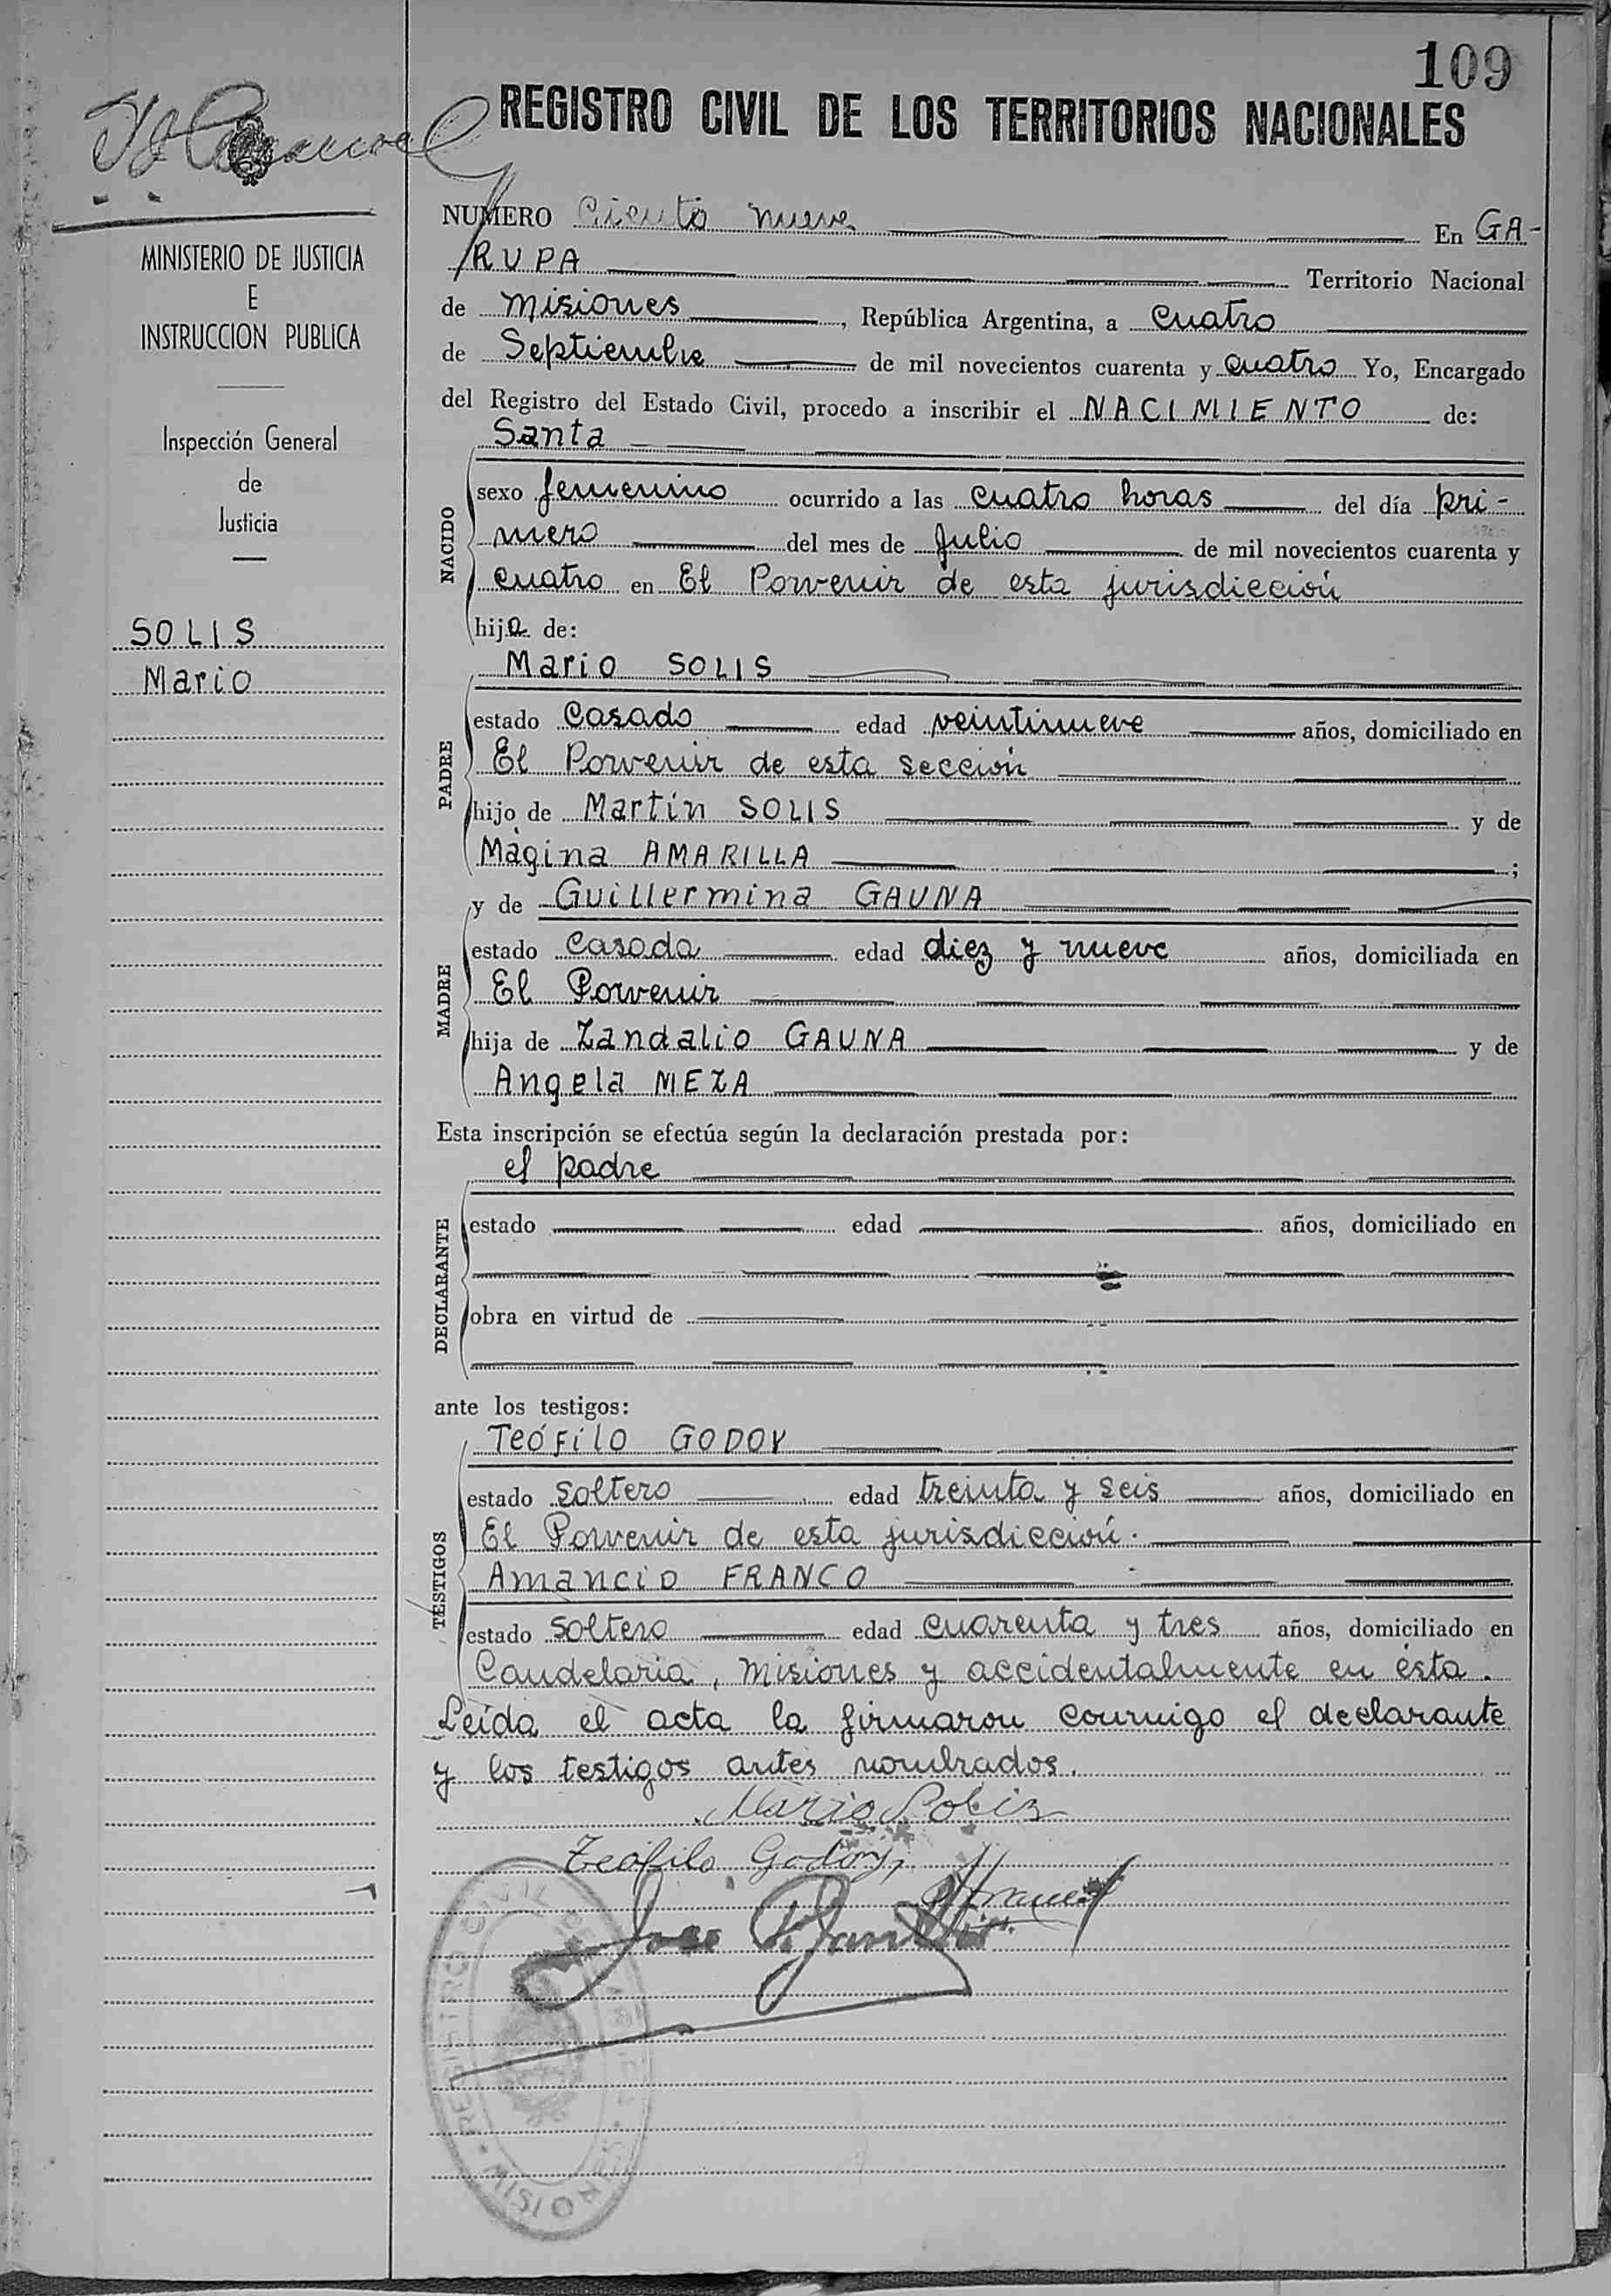 109
REGISTRO CIVIL DE LOS TERRITORIOS NACIONALES
NUMERO Ciento nueve En GA-
RUPA Territorio Nacional
de Misiones, República Argentina, a Cuatro
de Septiembre de mil novecientos cuarenta y cuatro Yo, Encargado
del Registro del Estado Civil, procedo a inscribir el NACIMIENTO de:
Santa
sexo femenino ocurrido a las cuatro horas del día pri-
mero del mes de Julio de mil novecientos cuarenta y
cuatro en El Porvenir de esta jurisdicción
hija de:
Mario SOLIS
estado Casado edad veintinueve años, domiciliado en
El Porvenir de esta sección
hijo de Martín SOLIS y de
Mágina AMARILLA ;
y de Guillermina GAUNA
estado Casada edad diez y nueve años, domiciliada en
El Porvenir
hija de Zandalio GAUNA y de
Angela MEZA
Esta inscripción se efectúa según la declaración prestada por:
el padre
estado edad años, domiciliado en
obra en virtud de
ante los testigos:
Teófilo GODOY
estado soltero edad treinta y seis años, domiciliado en
El Porvenir de esta jurisdicción.
Amancio FRANCO
estado soltero edad cuarenta y tres años, domiciliado en
Candelaria, Misiones y accidentalmente en ésta.
Leída el acta la firmaron conmigo el declarante
y los testigos antes nombrados.
Mario Solis
Teofilo Godoy
NACIDO
PADRE
MADRE
DECLARANTE
TESTIGOS
MINISTERIO DE JUSTICIA
E
INSTRUCCION PUBLICA
Inspección General
de
Justicia
SOLIS
Mario
REGISTRO CIVIL
MISIONES